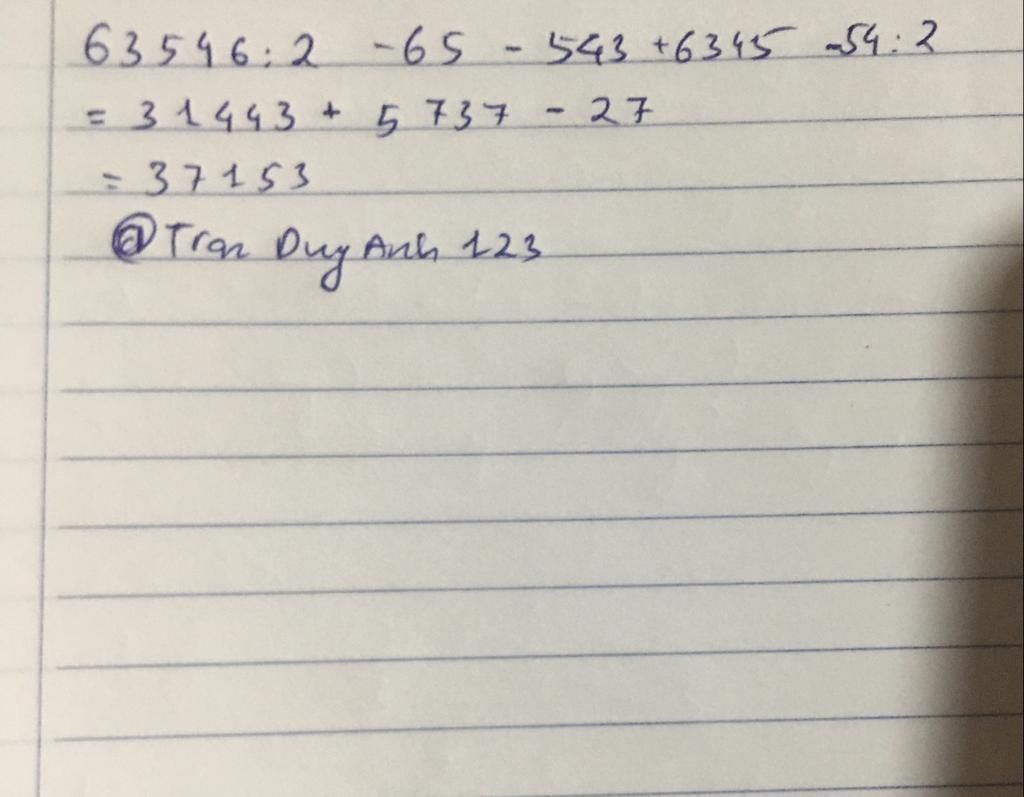 63546:2 -65 - 543 +6345 -54:2
= 31443 + 5737 - 27
= 37153
@Tran Duy Anh 123